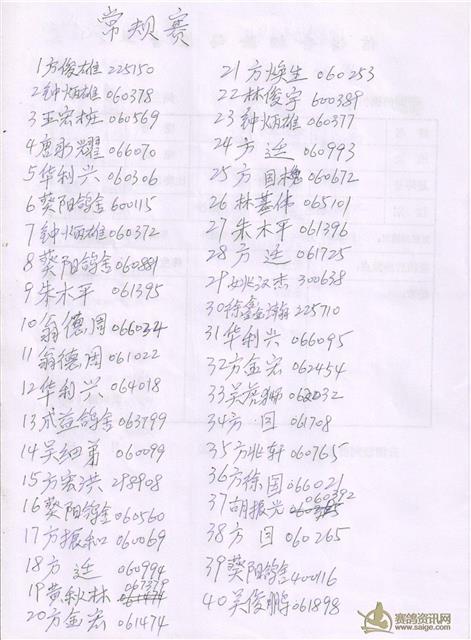 常规赛
1方俊雄 225150
2钟炳雄 060378
3王宏桩 060569
4唐彭耀 066070
5华利兴 060306
6葵阳鸽舍 600115
7钟炳雄 060372
8葵阳鸽舍 060889
9朱木平 061395
10翁德周 066034
11翁德周 061022
12华利兴 064018
13成益鸽舍 063799
14吴细弟 060099
15方宏洪 298908
16葵阳鸽舍 060560
17方振和 060069
18方廷 060994
19黄秋林 067379
20方金宏 061474
21方焕生 060253
22林俊宇 600389
23钟炳雄 060377
24方廷 060993
25方国槐 060672
26林基伟 065101
27朱木平 061396
28方廷 061725
29姚汉杰 300638
30徐鑫瀚 225710
31华利兴 066095
32方金宏 062454
33吴虎狮 062032
34方国 061708
35方兆轩 060765
36方徐国 066021
37胡振兴 060392
38方国 060265
39葵阳鸽舍 400116
40吴俊鹏 061898
赛鸽资讯网
www.saige.com